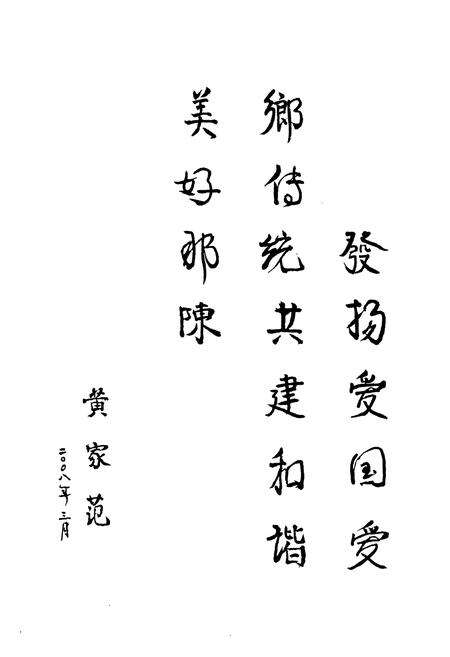 發扬爱国爱
鄉传统共建和谐
美好那陳
黄家范
二〇〇八年三月